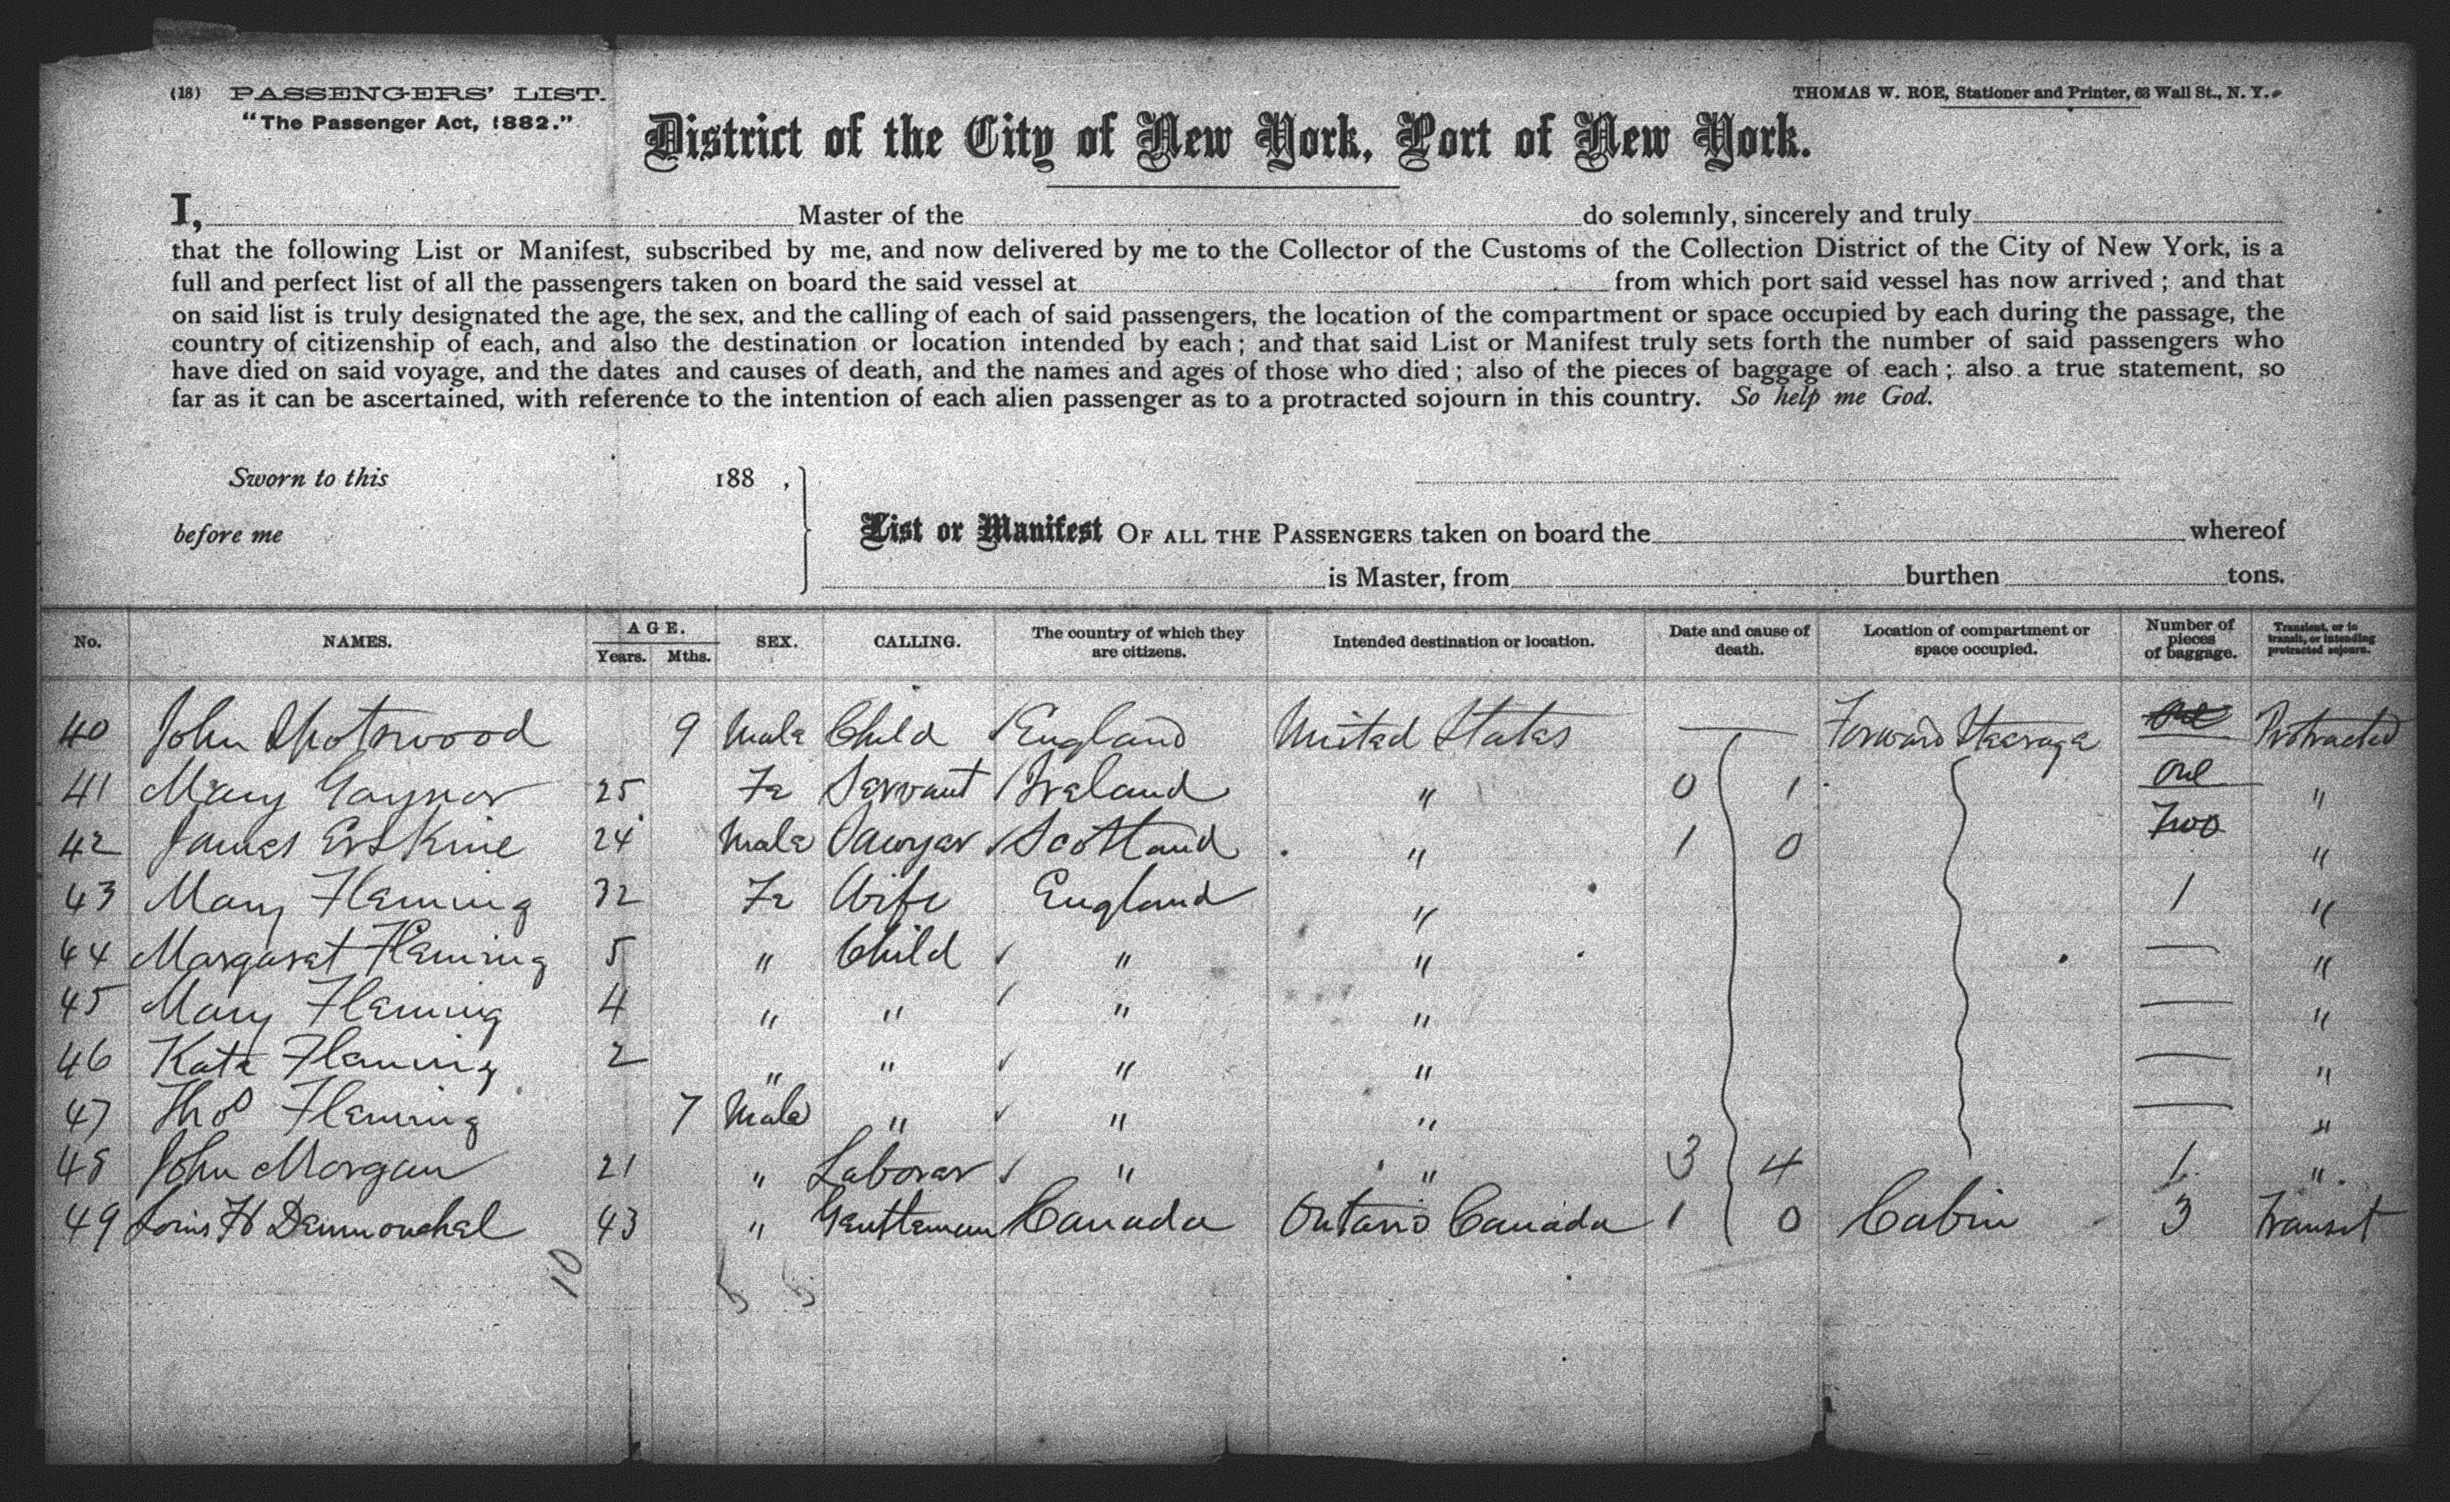 (18) PASSENGERS' LIST.
"The Passenger Act, 1882."
THOMAS W. ROE, Stationer and Printer, 63 Wall St., N. Y.
District of the City of New York, Port of New York.
I, Master of the do solemnly, sincerely and truly
that the following List or Manifest, subscribed by me, and now delivered by me to the Collector of the Customs of the Collection District of the City of New York, is a
full and perfect list of all the passengers taken on board the said vessel at from which port said vessel has now arrived; and that
on said list is truly designated the age, the sex, and the calling of each of said passengers, the location of the compartment or space occupied by each during the passage, the
country of citizenship of each, and also the destination or location intended by each; and that said List or Manifest truly sets forth the number of said passengers who
have died on said voyage, and the dates and causes of death, and the names and ages of those who died; also of the pieces of baggage of each; also a true statement, so
far as it can be ascertained, with reference to the intention of each alien passenger as to a protracted sojourn in this country. So help me God.
Sworn to this 188 ,
before me
List or Manifest OF ALL THE PASSENGERS taken on board the whereof
is Master, from burthen tons.
No. NAMES. AGE. Years. Mths. SEX. CALLING. The country of which they are citizens. Intended destination or location. Date and cause of death. Location of compartment or space occupied. Number of pieces of baggage. Transient, or in transit, or intending protracted sojourn.
40 John Spotswood 9 Male Child England United States — Forward Steerage one Protracted
41 Mary Gaynor 25 Fe Servant Ireland " 0 1 one "
42 James Erskine 24 Male Sawyer Scotland " 1 0 Two "
43 Mary Fleming 32 Fe Wife England " 1 "
44 Margaret Fleming 5 " Child " " — "
45 Mary Fleming 4 " " " " — "
46 Kate Fleming 2 " " " " — "
47 Thos Fleming 7 Male " " " — "
48 John Morgan 21 " Laborer " " 3 4 1 "
49 Louis H 43 " Gentleman Canada Ontario Canada 1 0 Cabin 3 Transit
10 5 5